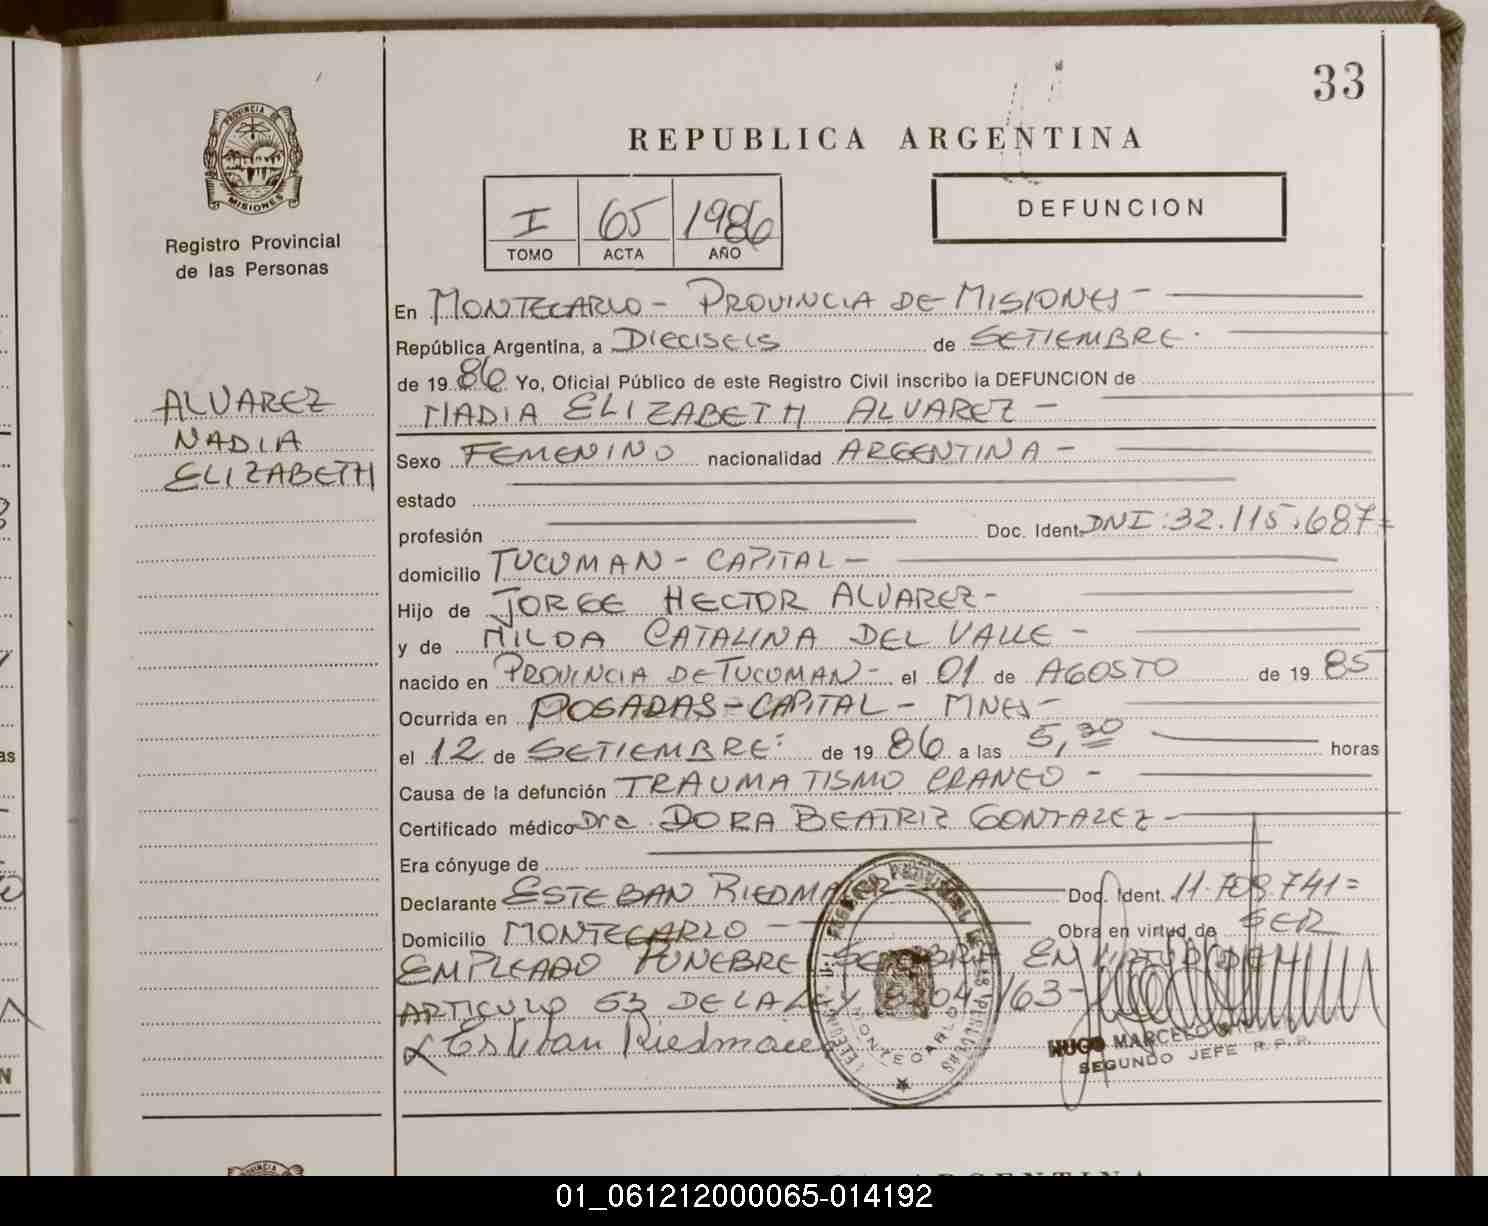 33
REPUBLICA ARGENTINA
PROVINCIA DE
MISIONES
Registro Provincial
de las Personas
I 65 1986
TOMO ACTA AÑO
DEFUNCION
ALVAREZ
NADIA
ELIZABETH
En MONTECARLO - PROVINCIA DE MISIONES -
República Argentina, a DIECISEIS de SETIEMBRE.
de 19 86 Yo, Oficial Público de este Registro Civil inscribo la DEFUNCION de
NADIA ELIZABETH ALVAREZ -
Sexo FEMENINO nacionalidad ARGENTINA -
estado
profesión Doc. Ident. DNI: 32.115.687=
domicilio TUCUMAN - CAPITAL -
Hijo de JORGE HECTOR ALVAREZ -
y de NILDA CATALINA DEL VALLE -
nacido en PROVINCIA DE TUCUMAN - el 01 de AGOSTO de 19 85
Ocurrida en POSADAS - CAPITAL - MNES -
el 12 de SETIEMBRE: de 19 86 a las 5,30 horas
Causa de la defunción TRAUMATISMO CRANEO -
Certificado médico Dra. DORA BEATRIZ GONZALEZ -
Era cónyuge de
Declarante ESTEBAN RIEDMAIER Doc. Ident. 11.709.741=
Domicilio MONTECARLO - Obra en virtud de SER
EMPLEADO FUNEBRE SE OBRA EN VIRTUD DEL
ARTICULO 53 DE LA LEY 8204/63 -
Esteban Riedmaier
MONTECARLO
HUGO MARCELO
SEGUNDO JEFE R.P.P.
ARGENTINA
01_061212000065-014192